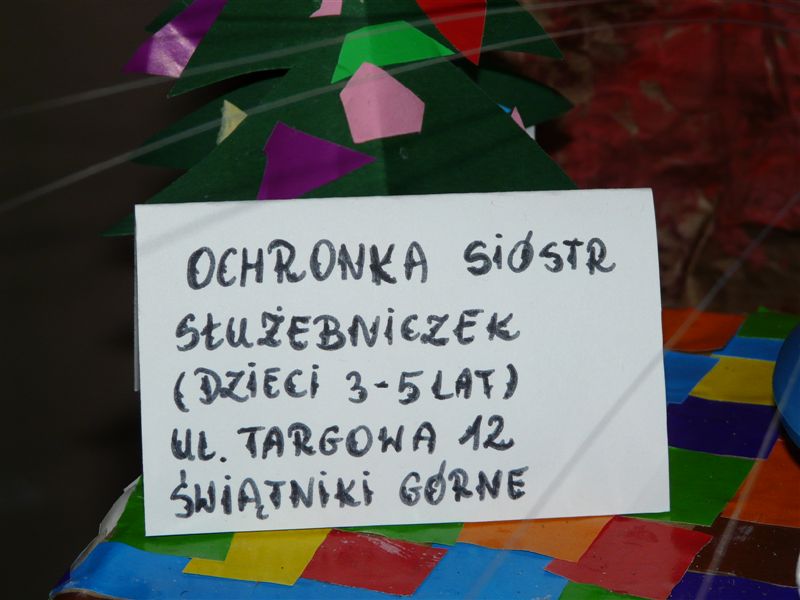 OCHRONKA SIÓSTR
SŁUŻEBNICZEK
(DZIECI 3-5 LAT)
UL. TARGOWA 12
ŚWIĄTNIKI GÓRNE